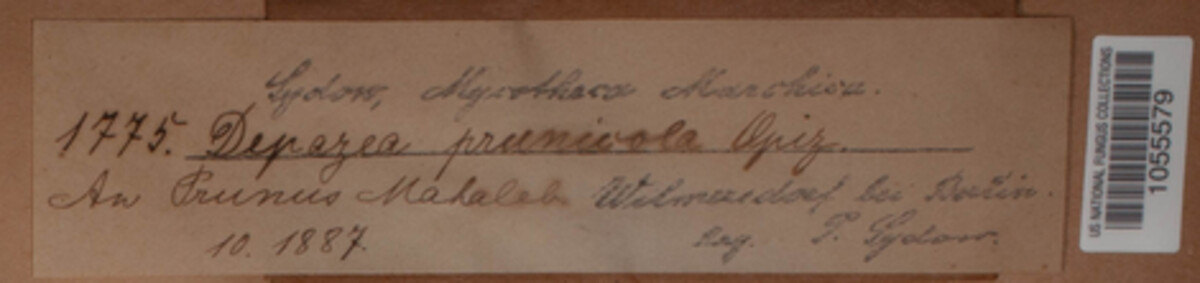 Sydow, Mycotheca Marchica.
1775. Depazea prunicola Opiz.
An Prunus Mahaleb Wilmersdorf bei Berlin.
10. 1887. Leg. P. Sydow.
US NATIONAL FUNGUS COLLECTIONS
1055579